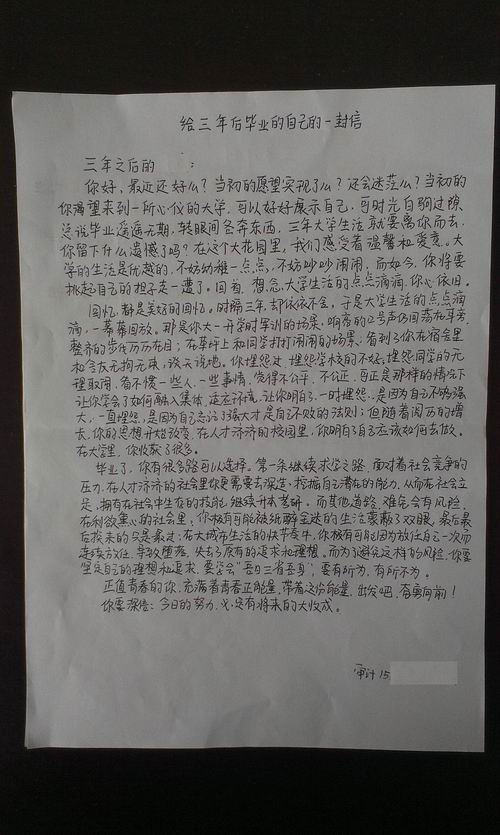 给三年后毕业的自己的一封信
三年之后的 :
你好，最近还好么？当初的愿望实现了么？还会迷茫么？当初的
你渴望来到一所心仪的大学，可以好好展示自己，可时光白驹过隙，
总说毕业遥遥无期，转眼间各奔东西，三年大学生活就要离你而去，
你留下什么遗憾了吗？在这个大花园里，我们感受着温馨和宽宽。大
学的生活是优越的，不妨幼稚一点点，不妨吵吵闹闹，而如今，你将要
挑起自己的担子走一遭了。回首，想念，大学生活的点点滴滴，你心依旧。
回忆，都是美好的回忆。时隔三年，却依依不舍，于是大学生活的点点滴
滴，一幕幕回放。那是你大一开学时军训的场景，响亮的口号声仍回荡在耳旁，
整齐的步伐历历在目；在草坪上和同学打打闹闹的场景，看到了你在宿舍里
和舍友无拘无束，谈天说地。你埋怨过，埋怨学校的不好，埋怨同学的无
理取闹，看不惯一些人，一些事情，觉得不公平，不公正，可正是那样的情况下
让你学会了如何融入集体，适应环境，让你明白了，一时埋怨，是因为自己不够强
大，一直埋怨，是因为自己忘记了强大才是自己不败的法则；但随着阅历的增
长，你的思想开始改变，在人才济济的校园里，你明白自己应该如何去做。
在大学里，你收获了很多。
毕业了，你有很多路可以选择。第一条继续求学之路，面对着社会竞争的
压力，在人才济济的社会里你更需要去深造，挖掘自己潜在的能力，从而在社会立
足，拥有在社会中生存的技能，继续升本考研。而其他道路，难免会有风险，
在利欲熏心的社会里，你极有可能被纸醉金迷的生活蒙蔽了双眼，最后最
后换来的只是最过；在大城市生活的快节奏中，你极有可能因为放任自己一次而
连续放任，导致堕落，失去了原有的追求和理想。而为了避免这样的风险，你要
坚定自己的理想和追求，要学会“吾日三省吾身”，要有所为，有所不为。
正值青春的你，充满着青春正能量，带着这份能量，出发吧，奋勇向前！
你要深信：今日的努力，必定有将来的大收成。
审计15